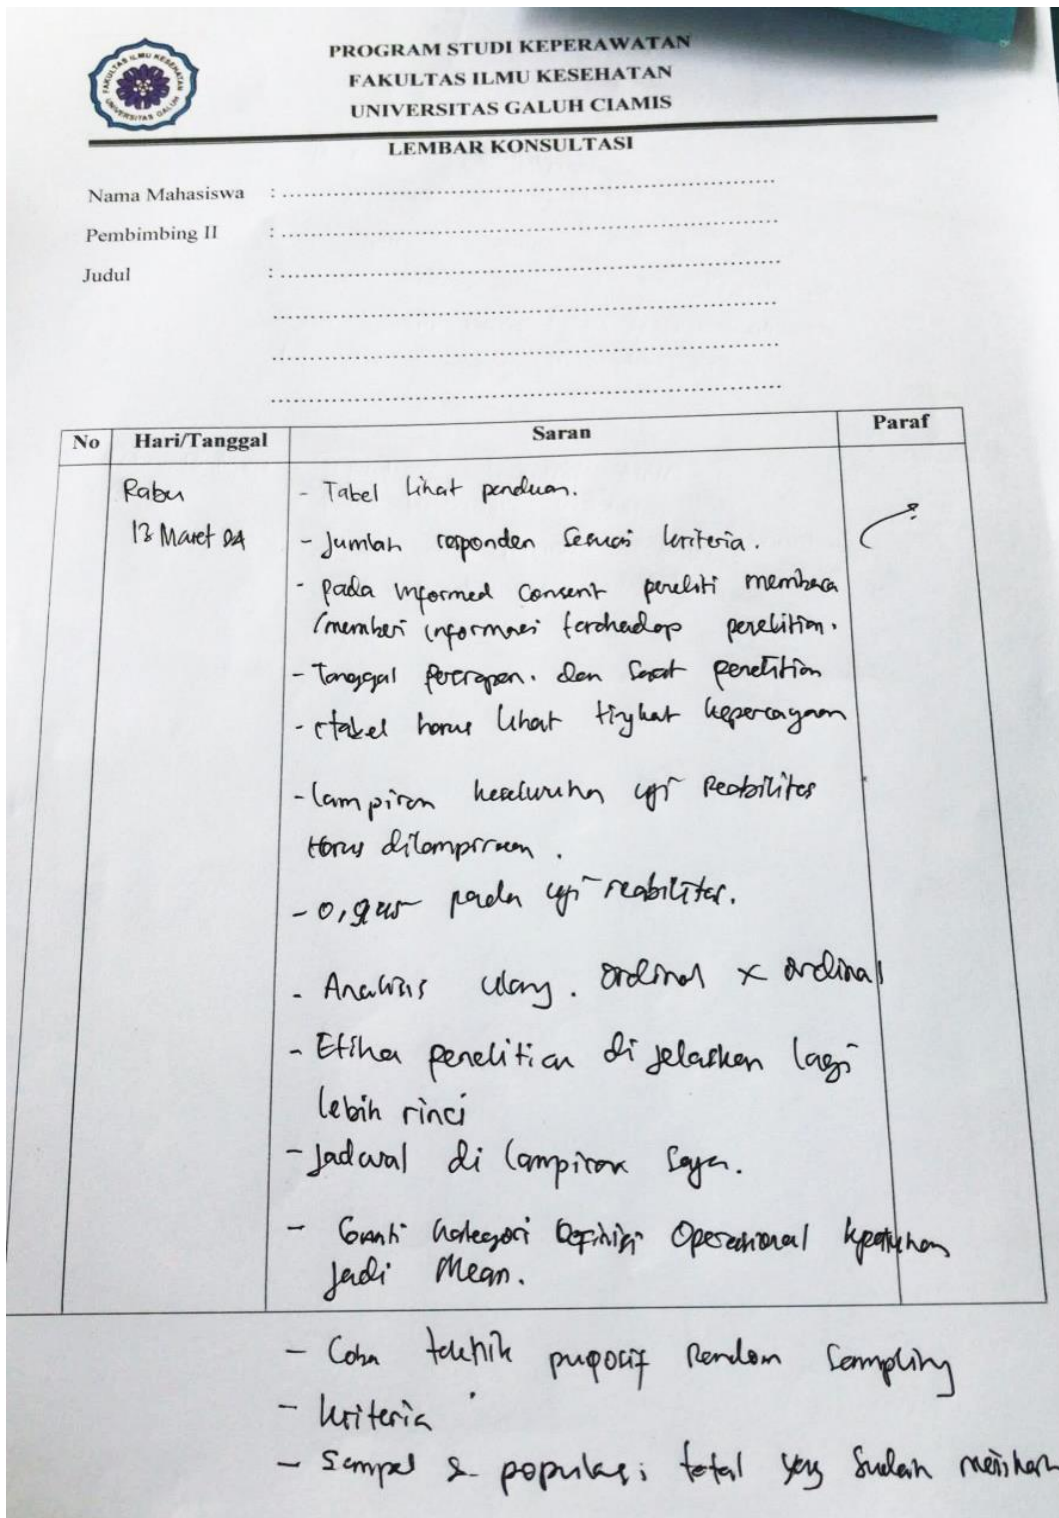 FAKULTAS ILMU KESEHATAN
UNIVERSITAS GALUH
PROGRAM STUDI KEPERAWATAN
FAKULTAS ILMU KESEHATAN
UNIVERSITAS GALUH CIAMIS
LEMBAR KONSULTASI
Nama Mahasiswa : ................................................................
Pembimbing II : ................................................................
Judul : ................................................................
................................................................
................................................................
................................................................
No Hari/Tanggal Saran Paraf
Rabu - Tabel Lihat panduan.
13 Maret - Jumlah responden sesuai kriteria.
- pada informed consent peneliti membaca
/memberi informasi terhadap penelitian.
- Tanggal dan saat penelitian
- rtabel harus lihat tingkat kepercayaan
- lampiran keseluruhan uji Reabilitas
Harus
- pada uji reabilitas.
- Analisis ulang. ordinal x ordinal
- Etika penelitian di jelaskan lagi
lebih rinci
- Jadwal di lampiran saja.
- Ganti kategori Definisi Operasional kepatuhan
jadi Mean.
- Coba teknik Random Sampling
- kriteria
- Sampel & populasi total yang sudah